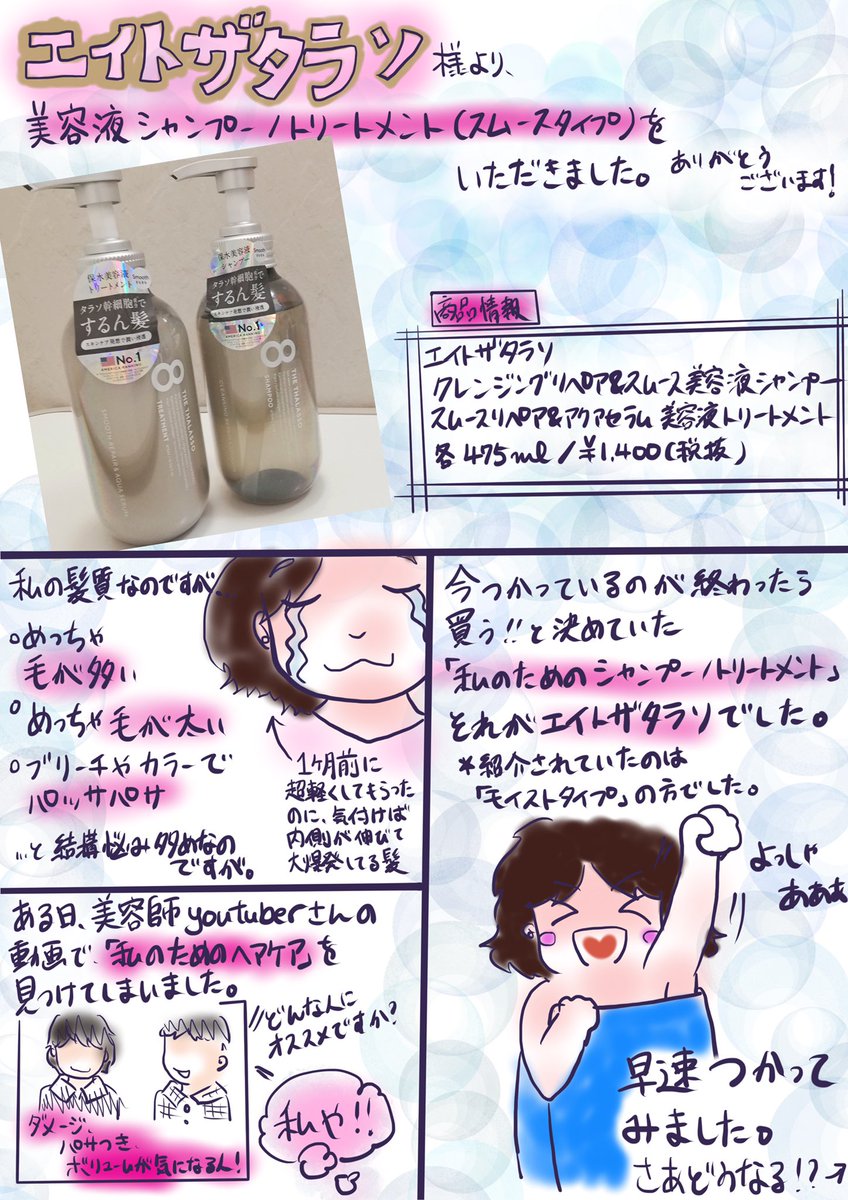 エイトザタラソ様より、
美容液シャンプー/トリートメント(スムースタイプ)を
いただきました。
ありがとう
ございます!
保水美容液
トリートメント
Smooth
タラソ幹細胞
するん髪
スキンケア発想で潤い浸透
No.1
AMERICA RANKING
8
THE THALASSO
TREATMENT
SMOOTH REPAIR & AQUA SERUM
保水美容液
シャンプー
Smooth
タラソ幹細胞
するん髪
スキンケア発想で潤い浸透
No.1
8
THE THALASSO
SHAMPOO
商品情報
エイトザタラソ
クレンジングリペア&スムース美容液シャンプー
スムースリペア&アクアセラム 美容液トリートメント
各475ml/¥1,400(税抜)
私の髪質なのですが…
めっちゃ
毛が多い
めっちゃ毛が太い
ブリーチやカラーで
パッサパサ
…と結構悩み多めなの
ですが。
1ヶ月前に
超軽くしてもらった
のに、気付けば
内側が伸びて
大爆発してる髪
ある日、美容師youtuberさんの
動画で、「私のためのヘアケア」を
見つけてしまいました。
どんな人に
オススメですか?
ダメージ、
パサつき、
ボリュームが気になる人!
私や!!
今つかっているのが終わったら
買う!!と決めていた
「私のためのシャンプー/トリートメント」
それがエイトザタラソでした。
*紹介されていたのは
「モイストタイプ」の方でした。
よっしゃ
あああ
早速つかって
みました。
さあどうなる!?→